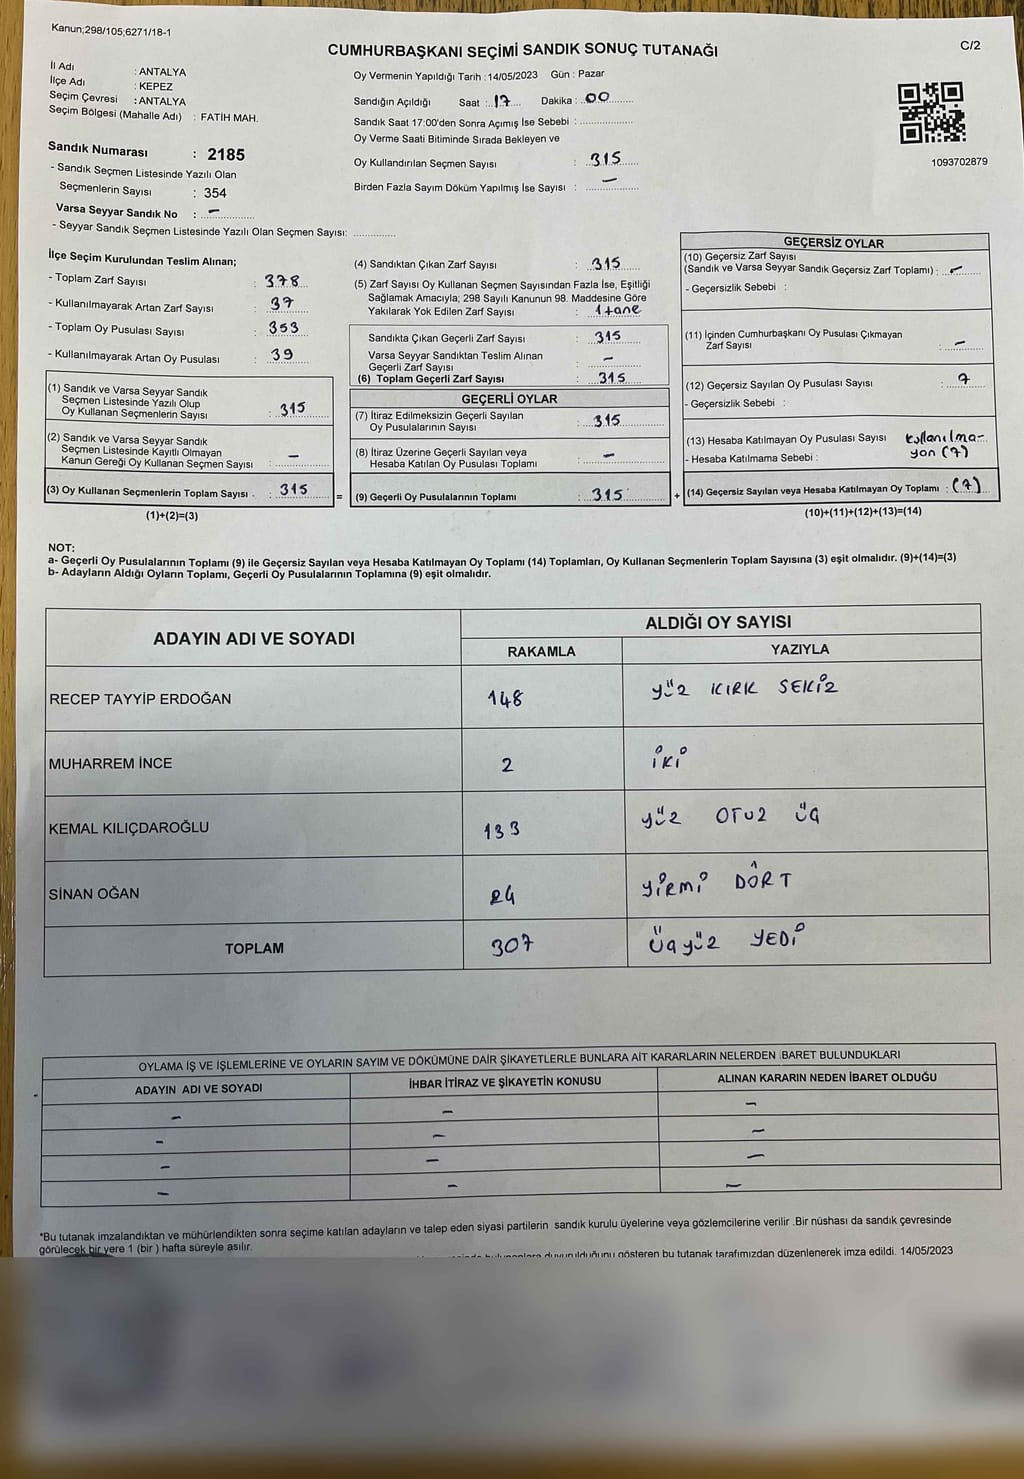 Kanun;298/105;6271/18-1
C/2
CUMHURBAŞKANI SEÇİMİ SANDIK SONUÇ TUTANAĞI
İl Adı : ANTALYA
İlçe Adı : KEPEZ
Seçim Çevresi : ANTALYA
Seçim Bölgesi (Mahalle Adı) : FATİH MAH.
Sandık Numarası : 2185
- Sandık Seçmen Listesinde Yazılı Olan
Seçmenlerin Sayısı : 354
Varsa Seyyar Sandık No : -
- Seyyar Sandık Seçmen Listesinde Yazılı Olan Seçmen Sayısı: ..............
Oy Vermenin Yapıldığı Tarih : 14/05/2023 Gün : Pazar
Sandığın Açıldığı Saat : 17 Dakika : 00
Sandık Saat 17:00'den Sonra Açımış İse Sebebi : ..................
Oy Verme Saati Bitiminde Sırada Bekleyen ve
Oy Kullandırılan Seçmen Sayısı : 315
Birden Fazla Sayım Döküm Yapılmış İse Sayısı : -
1093702879
İlçe Seçim Kurulundan Teslim Alınan;
- Toplam Zarf Sayısı : 378
- Kullanılmayarak Artan Zarf Sayısı : 37
- Toplam Oy Pusulası Sayısı : 353
- Kullanılmayarak Artan Oy Pusulası : 39
(1) Sandık ve Varsa Seyyar Sandık
Seçmen Listesinde Yazılı Olup
Oy Kullanan Seçmenlerin Sayısı : 315
(2) Sandık ve Varsa Seyyar Sandık
Seçmen Listesinde Kayıtlı Olmayan
Kanun Gereği Oy Kullanan Seçmen Sayısı : -
(3) Oy Kullanan Seçmenlerin Toplam Sayısı : 315
(1)+(2)=(3)
=
(4) Sandıktan Çıkan Zarf Sayısı : 315
(5) Zarf Sayısı Oy Kullanan Seçmen Sayısından Fazla İse, Eşitliği
Sağlamak Amacıyla; 298 Sayılı Kanunun 98. Maddesine Göre
Yakılarak Yok Edilen Zarf Sayısı : 1 tane
Sandıkta Çıkan Geçerli Zarf Sayısı : 315
Varsa Seyyar Sandıktan Teslim Alınan
Geçerli Zarf Sayısı : -
(6) Toplam Geçerli Zarf Sayısı : 315
GEÇERLİ OYLAR
(7) İtiraz Edilmeksizin Geçerli Sayılan
Oy Pusulalarının Sayısı : 315
(8) İtiraz Üzerine Geçerli Sayılan veya
Hesaba Katılan Oy Pusulası Toplamı : -
(9) Geçerli Oy Pusulalarının Toplamı : 315
+
GEÇERSİZ OYLAR
(10) Geçersiz Zarf Sayısı
(Sandık ve Varsa Seyyar Sandık Geçersiz Zarf Toplamı) : -
- Geçersizlik Sebebi :
(11) İçinden Cumhurbaşkanı Oy Pusulası Çıkmayan
Zarf Sayısı : -
(12) Geçersiz Sayılan Oy Pusulası Sayısı : 7
- Geçersizlik Sebebi :
(13) Hesaba Katılmayan Oy Pusulası Sayısı kullanılma-
- Hesaba Katılmama Sebebi : yan (7)
(14) Geçersiz Sayılan veya Hesaba Katılmayan Oy Toplamı : (7)
(10)+(11)+(12)+(13)=(14)
NOT:
a- Geçerli Oy Pusulalarının Toplamı (9) ile Geçersiz Sayılan veya Hesaba Katılmayan Oy Toplamı (14) Toplamları, Oy Kullanan Seçmenlerin Toplam Sayısına (3) eşit olmalıdır. (9)+(14)=(3)
b- Adayların Aldığı Oyların Toplamı, Geçerli Oy Pusulalarının Toplamına (9) eşit olmalıdır.
ADAYIN ADI VE SOYADI
ALDIĞI OY SAYISI
RAKAMLA YAZIYLA
RECEP TAYYİP ERDOĞAN 148 YÜZ KIRK SEKİZ
MUHARREM İNCE 2 İKİ
KEMAL KILIÇDAROĞLU 133 YÜZ OTUZ ÜÇ
SİNAN OĞAN 24 YİRMİ DÖRT
TOPLAM 307 ÜÇYÜZ YEDİ
OYLAMA İŞ VE İŞLEMLERİNE VE OYLARIN SAYIM VE DÖKÜMÜNE DAİR ŞİKAYETLERLE BUNLARA AİT KARARLARIN NELERDEN İBARET BULUNDUKLARI
ADAYIN ADI VE SOYADI İHBAR İTİRAZ VE ŞİKAYETİN KONUSU ALINAN KARARIN NEDEN İBARET OLDUĞU
- - -
- - -
- - -
- - -
*Bu tutanak imzalandıktan ve mühürlendikten sonra seçime katılan adayların ve talep eden siyasi partilerin sandık kurulu üyelerine veya gözlemcilerine verilir .Bir nüshası da sandık çevresinde
görülecek bir yere 1 (bir ) hafta süreyle asılır.
bulunanlara duyurulduğunu gösteren bu tutanak tarafımızdan düzenlenerek imza edildi. 14/05/2023